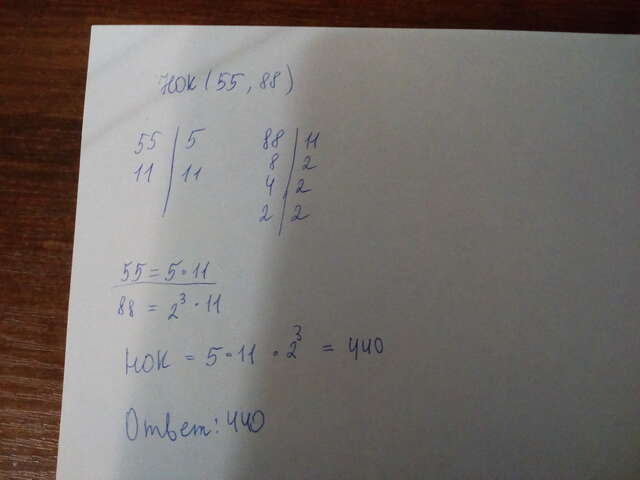 НОК (55, 88)
55 | 5 88 | 11
11 | 11 8 | 2
4 | 2
2 | 2
55 = 5 · 11
88 = 2³ · 11
НОК = 5 · 11 · 2³ = 440
Ответ: 440